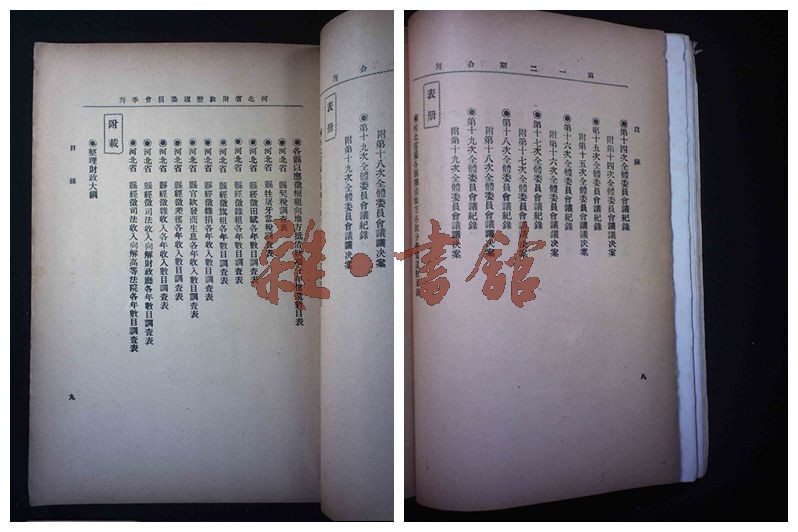 第一二期合刊
目錄
●第十四次全體委員會議紀錄
附第十四次全體委員會議議决案
●第十五次全體委員會議紀錄
附第十五次全體委員會議議决案
●第十六次全體委員會議紀錄
附第十六次全體委員會議議决案
●第十七次全體委員會議紀錄
附第十七次全體委員會議議决案
●第十八次全體委員會議紀錄
附第十八次全體委員會議議决案
●第十九次全體委員會議紀錄
附第十九次全體委員會議議决案
表册
八
合刊
附第十八次全體委員會議議决案
●第十九次全體委員會議紀錄
附第十九次全體委員會議議决案
表册
河北省財政整理委員會季刊
●河北省 縣契稅調查表
●河北省 縣牲屠牙當稅調查表
●河北省 縣經徵田賦各年收入數目調查表
●河北省 縣經徵雜租各年收入數目調查表
●河北省 縣經徵旗租各年收入數目調查表
●河北省 縣經徵雜捐各年收入數目調查表
●河北省 縣官欵發商生息各年收入數目調查表
●河北省 縣經徵差徭各年收入數目調查表
●河北省 縣經徵雜收入各年收入數目調查表
●河北省 縣經徵司法收入向解財政廳各年數目調查表
●河北省 縣經徵司法收入向解高等法院各年數目調查表
附載
●整理財政大綱
目錄
九
雜·書館